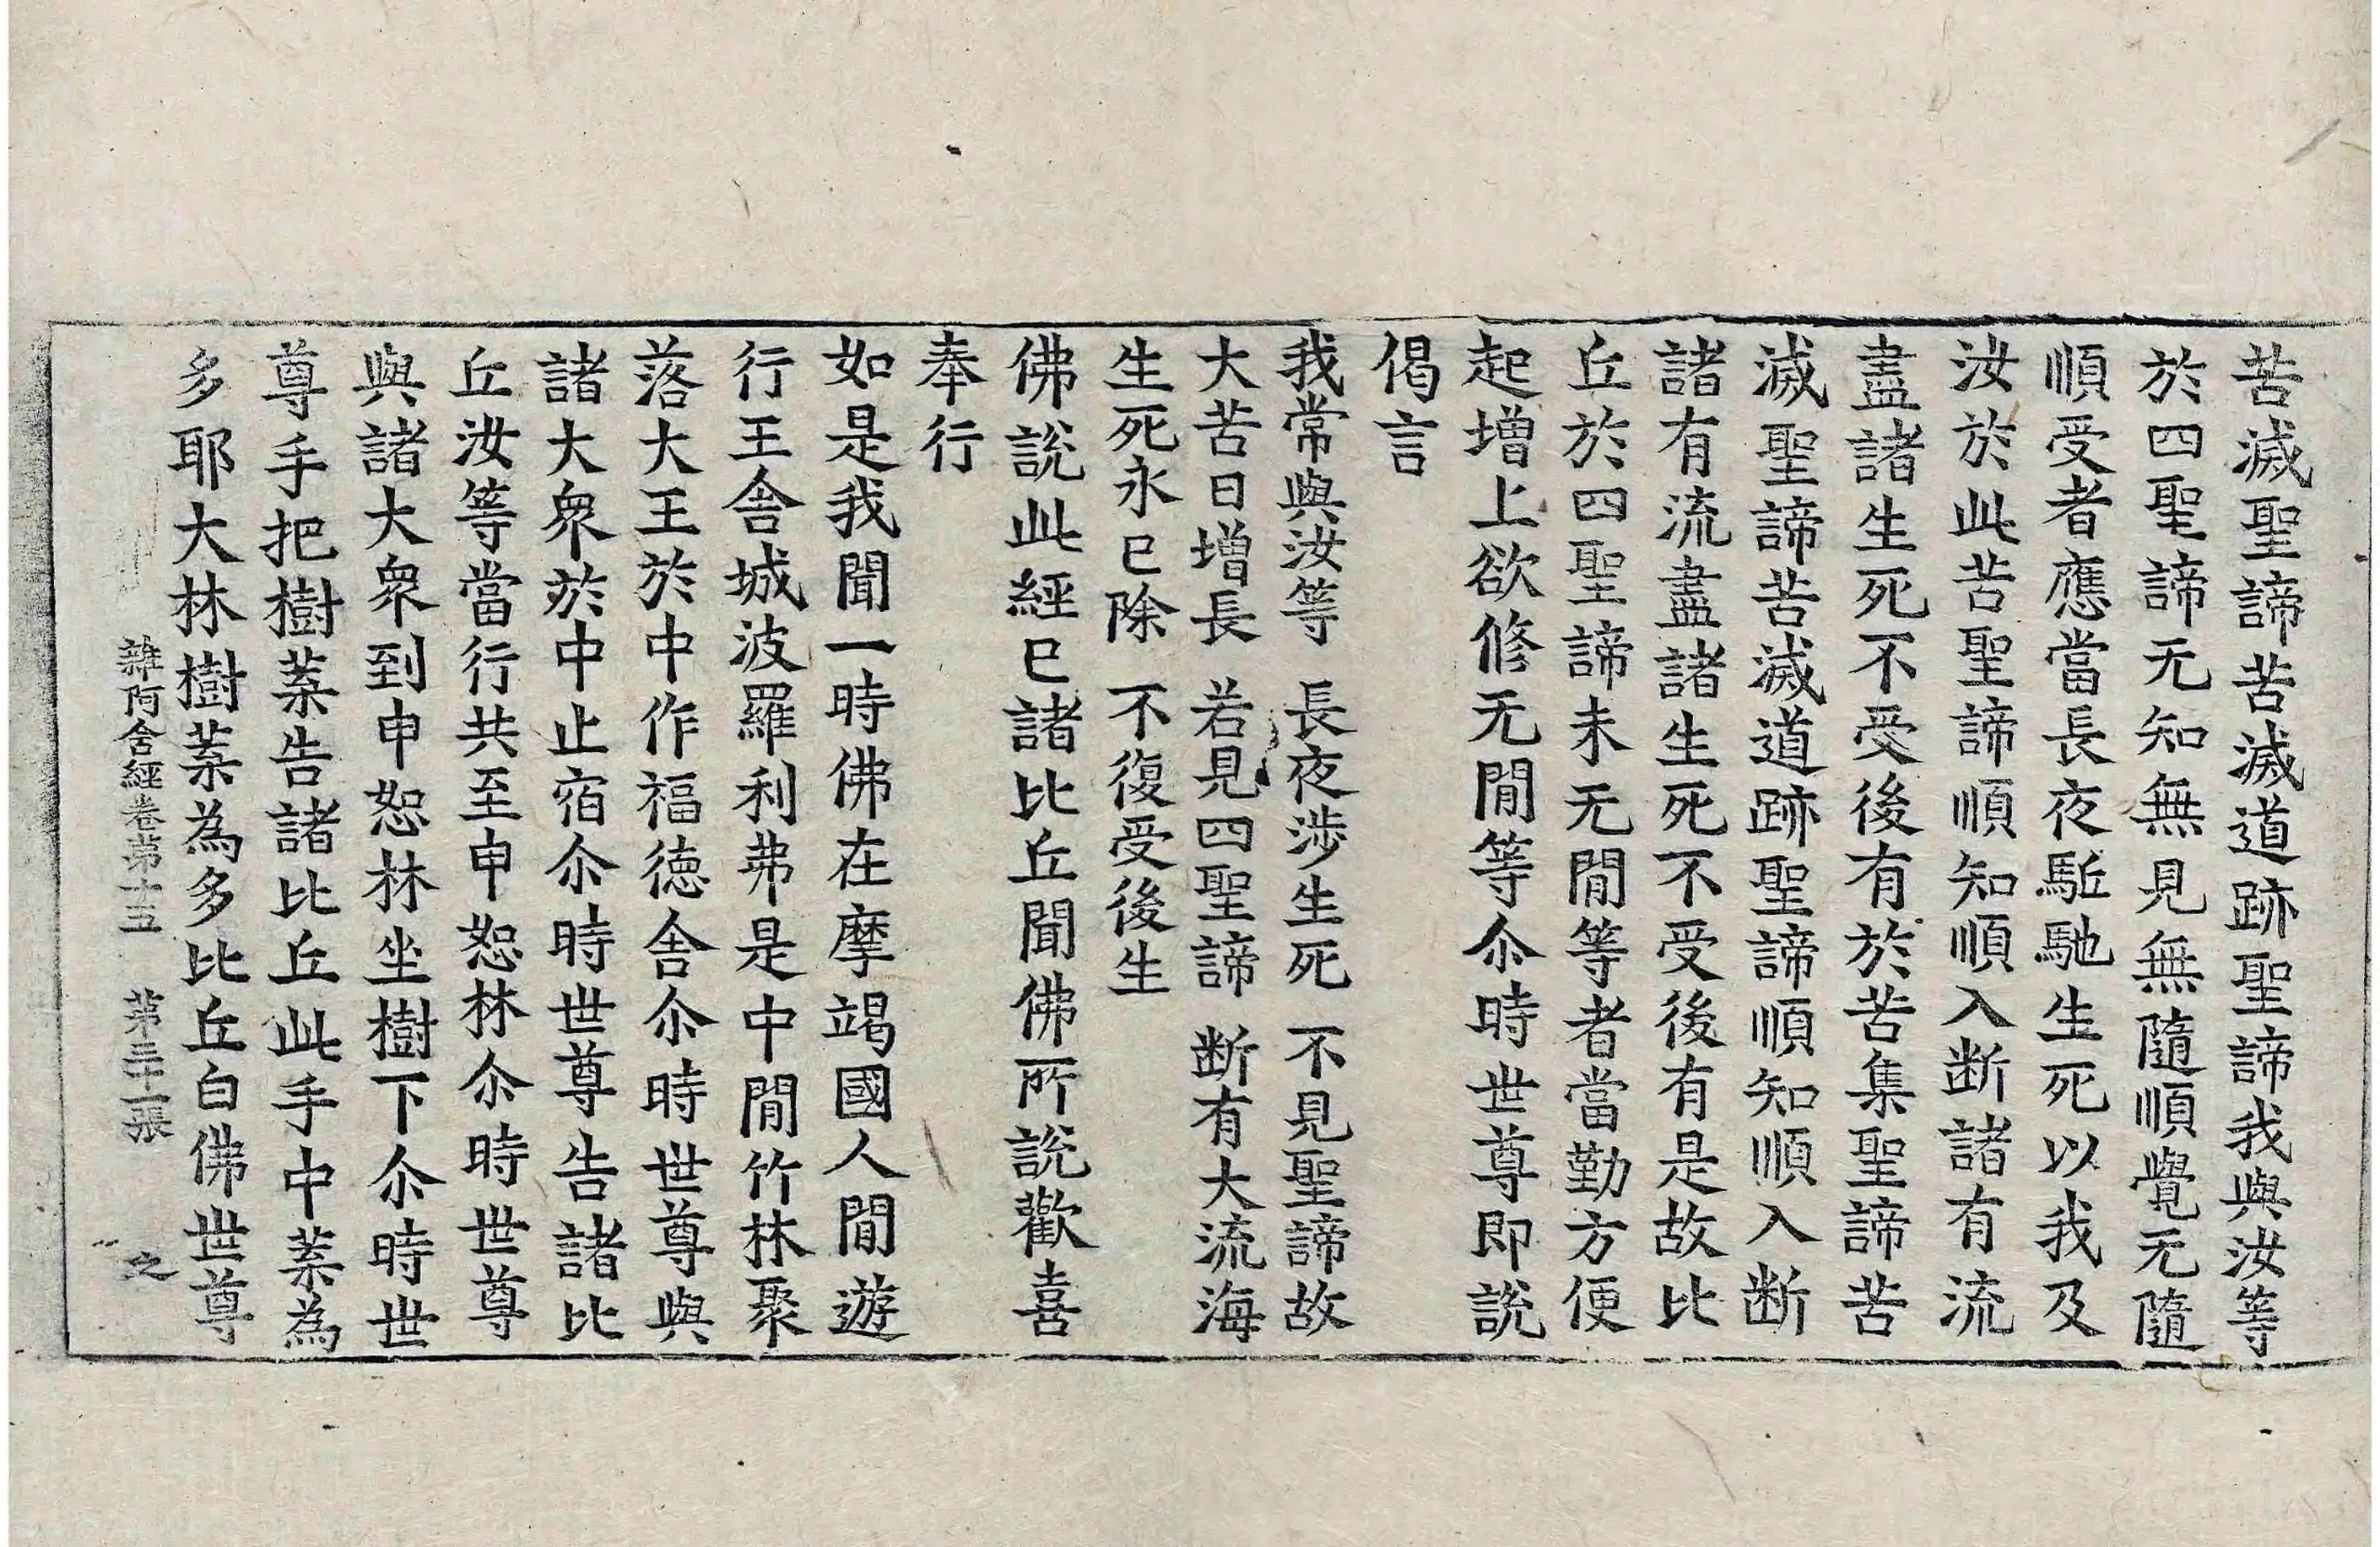 苦滅聖諦苦滅道跡聖諦我與汝等
於四聖諦无知無見無隨順覺无隨
順受者應當長夜駈馳生死以我及
汝於此苦聖諦順知順入断諸有流
盡諸生死不受後有於苦集聖諦苦
滅聖諦苦滅道跡聖諦順知順入断
諸有流盡諸生死不受後有是故比
丘於四聖諦未无閒等者當勤方便
起增上欲修无閒等尒時世尊即說
偈言
我常與汝等 長夜涉生死 不見聖諦故
大苦日增長 若見四聖諦 断有大流海
生死永已除 不復受後生
佛說此經已諸比丘聞佛所說歡喜
奉行
如是我聞一時佛在摩竭國人閒遊
行王舍城波羅利弗是中閒竹林聚
落大王於中作福德舍尒時世尊與
諸大衆於中止宿尒時世尊告諸比
丘汝等當行共至申恕林尒時世尊
與諸大衆到申恕林坐樹下尒時世
尊手把樹葉告諸比丘此手中葉為
多耶大林樹葉為多比丘白佛世尊
雜阿含經卷第十五 第三十一張 之